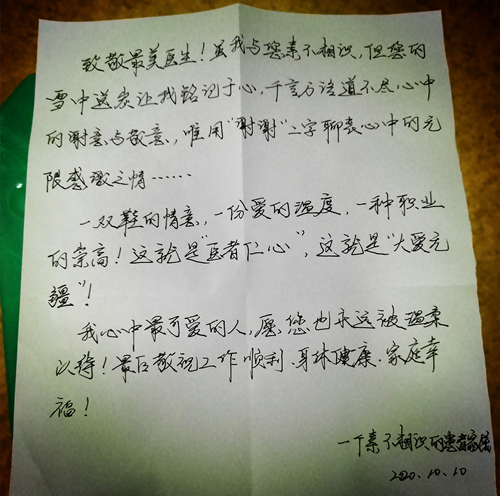 致敬最美医生！虽我与您素不相识，但您的
雪中送炭让我铭记于心，千言万语道不尽心中
的谢意与敬意，唯用“谢谢”二字聊表心中的无
限感激之情……
一双鞋的情意，一份爱的温度，一种职业
的崇高！这就是“医者仁心”，这就是“大爱无
疆”！
我心中最可爱的人，愿您也永远被温柔
以待！最后敬祝工作顺利、身体健康、家庭幸
福！
一个素不相识的患者家属
2020.10.10